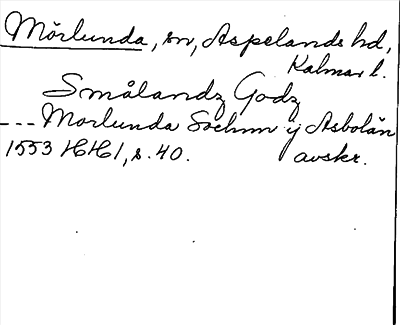 Mörlunda, sn, Aspelands hd,
Kalmar l.
Smålandz Godz
--- Morlunda Sochnn y Asbolän
1553 HH1, s. 40. avskr.